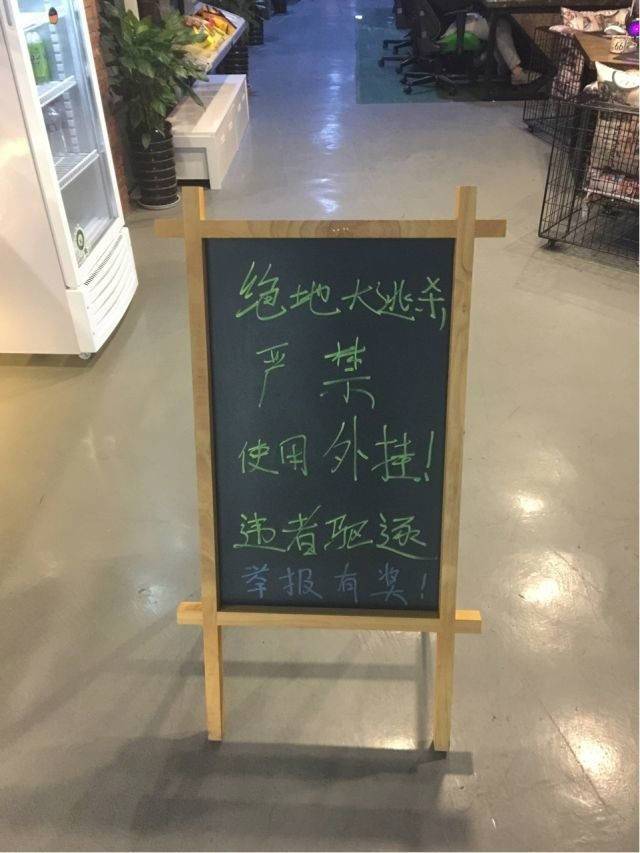 绝地大逃杀,
严禁
使用外挂!
违者驱逐
举报有奖!
66